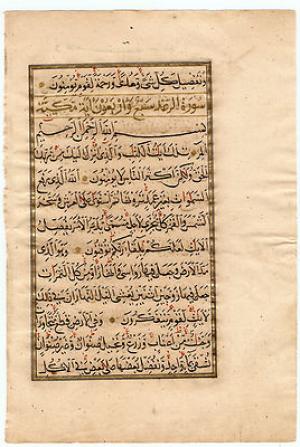 وتفصيل كل شيء وهدى ورحمة لقوم يؤمنون
سورة الرعد سبع واربعون آية مكية
بسم الله الرحمن الرحيم
المر تلك آيات الكتاب والذي أنزل إليك من ربك
الحق ولكن أكثر الناس لا يؤمنون الله الذي رفع
السموات بغير عمد ترونها ثم استوى على العرش وسخر
الشمس والقمر كل يجري لأجل مسمى يدبر الأمر يفصل
الآيات لعلكم بلقاء ربكم توقنون وهو الذي
مد الأرض وجعل فيها رواسي وأنهارا ومن كل الثمرات
جعل فيها زوجين اثنين يغشي الليل النهار إن في ذلك
لآيات لقوم يتفكرون وفي الأرض قطع متجاورات
وجنات من أعناب وزرع ونخيل صنوان وغير صنوان
يسقى بماء واحد ونفضل بعضها على بعض في الأكل